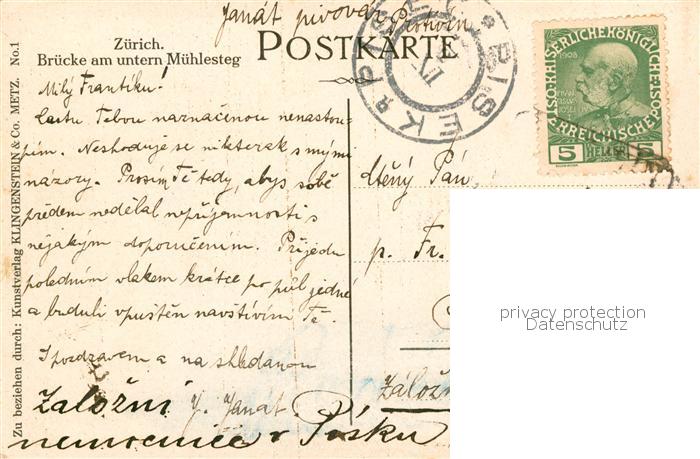 Janát pivovár Protivín
Zürich.
Brücke am untern Mühlesteg
POSTKARTE
No. 1
Zu beziehen durch: Kunstverlag KLINGENSTEIN & Co. METZ.
PISEK
1908
KAISERLICHE KÖNIGLICHE
ÖSTERREICHISCHE POST
5 HELLER 5
Milý Frantíku!
Cestu Tebou naznačenou nenastou-
pím. Neshoduje se nikterak s mými
názory. Prosím Tě tedy, abys sobě
předem nedělal nepříjemnosti s
nějakým doporučením. Přijedu
poledním vlakem krátce po půl jedné
a budu-li vpuštěn navštívím Tě
S pozdravem a na shledanou
J. Janát
Ctěný Pán
p. Fr.
Záložní
Záložní
nemocnice v Písku
privacy protection
Datenschutz